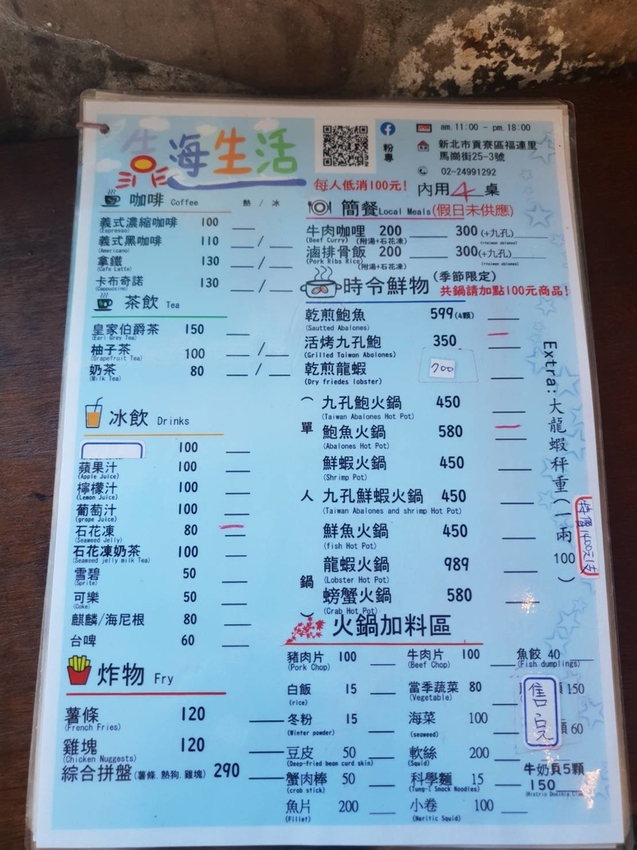 海生活
粉專
am.11:00 - pm.18:00
新北市貢寮區福連里
馬崗街25-3號
02-24991292
每人低消100元!
內用4桌
咖啡 Coffee 熱 / 冰
義式濃縮咖啡 100
(Espresso)
義式黑咖啡 110
(Americano)
拿鐵 130
(Cafe Latte)
卡布奇諾 130
(Cappuccino)
茶飲 Tea
皇家伯爵茶 150
(Earl Grey Tea)
柚子茶 100
(Grapefruit Tea)
奶茶 80
(Milk Tea)
冰飲 Drinks
100
蘋果汁 100
(Apple Juice)
檸檬汁 100
(Lemon Juice)
葡萄汁 100
(grape Juice)
石花凍 80
(Seaweed Jelly)
石花凍奶茶 100
(Seaweed jelly milk Tea)
雪碧 50
(Sprite)
可樂 50
(Coke)
麒麟/海尼根 80
台啤 60
炸物 Fry
薯條 120
(French Fries)
雞塊 120
(Chicken Nuggets)
綜合拼盤(薯條.熱狗.雞塊) 290
簡餐 Local Meals (假日未供應)
牛肉咖哩 200 300 (+九孔)
(Beef Curry) (附湯+石花凍) (Taiwan abalone)
滷排骨飯 200 300 (+九孔)
(Pork Ribs Rice) (附湯+石花凍) (Taiwan abalone)
時令鮮物 (季節限定)
共鍋請加點100元商品!
乾煎鮑魚 599 (4顆)
(Sautted Abalones)
活烤九孔鮑 350
(Grilled Taiwan Abalones)
乾煎龍蝦 700
(Dry friedes lobster)
(單人鍋)
九孔鮑火鍋 450
(Taiwan Abalones Hot Pot)
鮑魚火鍋 580
(Abalones Hot Pot)
鮮蝦火鍋 450
(Shrimp Pot)
九孔鮮蝦火鍋 450
(Taiwan Abalones and shrimp Hot Pot)
鮮魚火鍋 450
(fish Hot Pot)
龍蝦火鍋 989
(Lobster Hot Pot)
螃蟹火鍋 580
(Crab Hot Pot)
Extra:大龍蝦秤重(一兩100)
火鍋加料區
豬肉片 100 牛肉片 100 魚餃 40
(Pork Chop) (Beef Chop) (Fish dumplings)
白飯 15 當季蔬菜 80 150
(rice) (Vegetable)
冬粉 15 海菜 100 60
(Winter powder) (seaweed)
售完
豆皮 50 軟絲 200
(Deep-fried bean curd skin) (Squid)
牛奶貝5顆
150
蟹肉棒 50 科學麵 15
(crab stick) (Tung-I Snock Noodles)
魚片 200 小卷 100
(Fillet) (Neritic Squid)